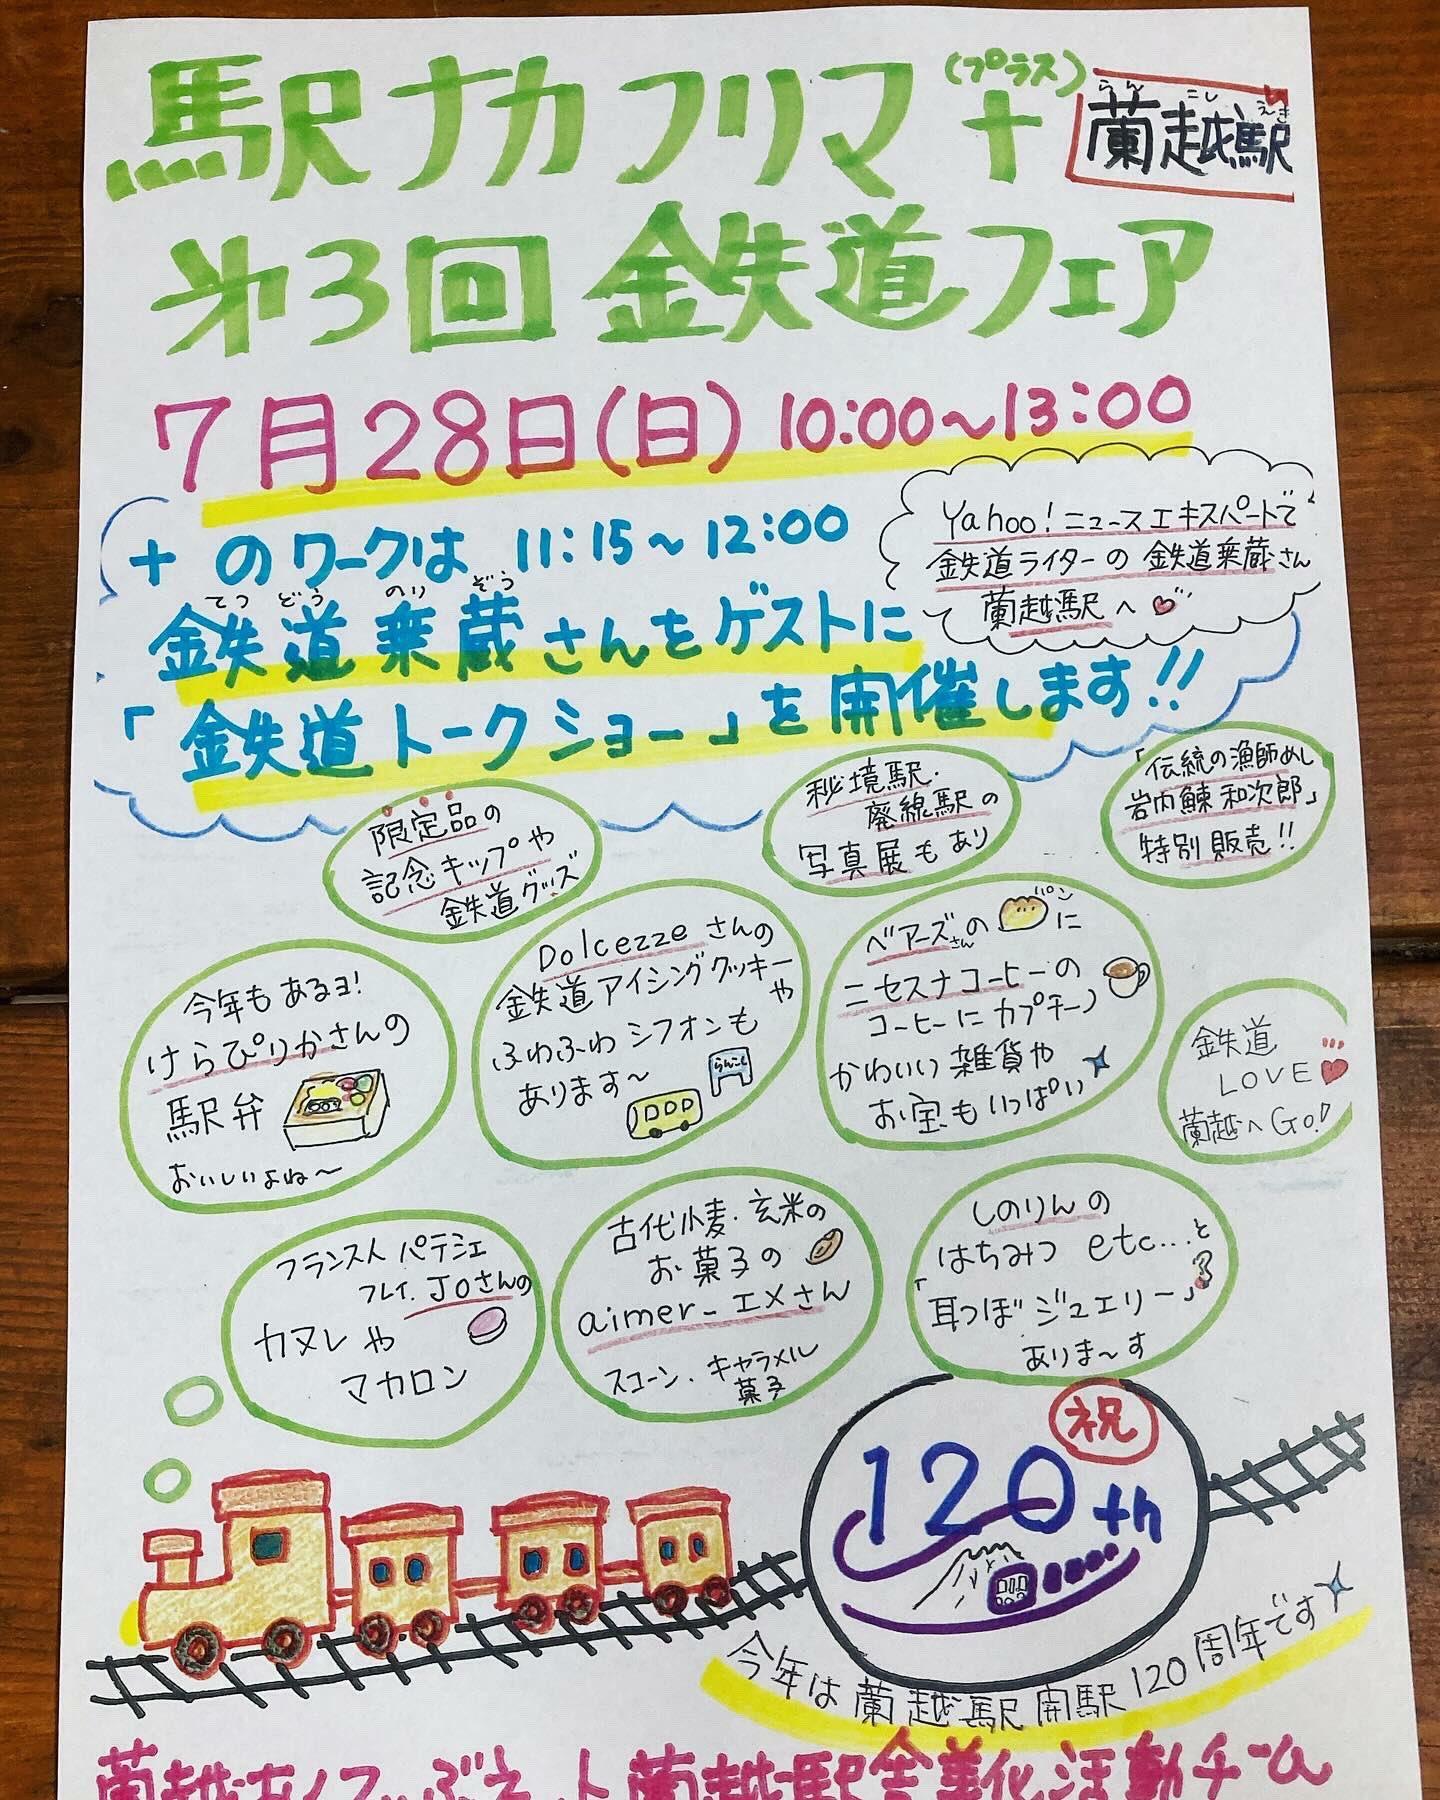 駅ナカフリマ+
(プラス)
らんこしえき
蘭越駅
第3回鉄道フェア
7月28日(日) 10:00～13:00
+のワークは 11:15～12:00
てつどうのりぞう
鉄道乗蔵さんをゲストに
「鉄道トークショー」を開催します!!
Yahoo!ニュースエキスパートで
鉄道ライターの 鉄道乗蔵さん
蘭越駅へ
限定品の
記念キップや
鉄道グッズ
秘境駅・
廃線駅の
写真展もあり
「伝統の漁師めし
岩内鰊和次郎」
特別販売!!
今年もあるヨ!
けらぴりかさんの
駅弁
おいしいよね～
Dolcezzeさんの
鉄道アイシングクッキーや
ふわふわシフォンも
あります～
らんこし
ベアーズさんの パン に
ニセスナコーヒーの
コーヒーにカプチーノ
かわいい雑貨や
お宝もいっぱい
鉄道
LOVE
蘭越へGO!
フランス人パテシェ
フレイ.JOさんの
カヌレや
マカロン
古代小麦・玄米の
お菓子の
aimer-エメさん
スコーン.キャラメル
菓子
しのりんの
はちみつ etc...と
「耳つぼジュエリー」
ありま～す
祝
120th
今年は蘭越駅開駅120周年です
蘭越駅舎美化活動チーム